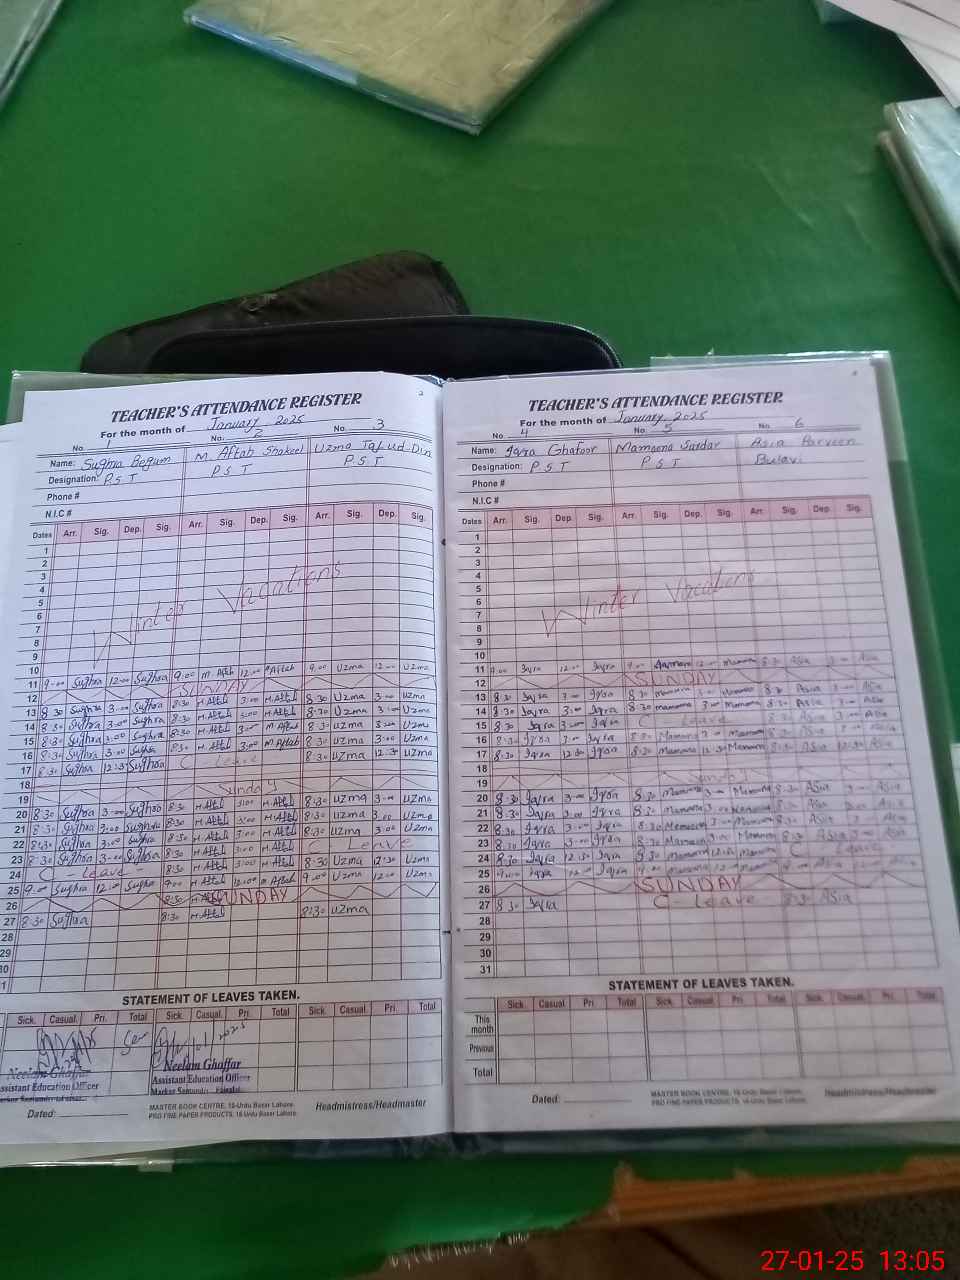 2
TEACHER'S ATTENDANCE REGISTER
For the month of January 2025
No. 1 No. 2 No. 3
Name: Sughra Begum M. Aftab Shakeel Uzma Taj ud Din
Designation: P.S.T P.S.T P.S.T
Phone #
N.I.C #
Dates Arr. Sig. Dep. Sig. Arr. Sig. Dep. Sig. Arr. Sig. Dep. Sig.
1
2
3
4
5
6
7
8
9
10
Winter Vacations
11 9-00 Sughra 12-00 Sughra 9:00 M. Aftab 12:00 M Aftab 9:00 Uzma 12-00 Uzma
12 SUNDAY
13 8:30 Sughra 3-00 Sughra 8:30 M. Aftab 3:00 M. Aftab 8:30 Uzma 3-00 Uzma
14 8:30 Sughra 3-00 Sughra 8:30 M. Aftab 3:00 M. Aftab 8:30 Uzma 3:00 Uzma
15 8:30 Sughra 3:00 Sughra 8:30 M. Aftab 3:00 M Aftab 8:30 Uzma 3:00 Uzma
16 8:30 Sughra 3:00 Sughra 8:30 M. Aftab 3:00 M Aftab 8:30 Uzma 3:00 Uzma
17 8:30 Sughra 12:30 Sughra C Leave 8:30 Uzma 12:30 Uzma
18
19 Sunday
20 8:30 Sughra 3-00 Sughra 8:30 M. Aftab 3:00 M. Aftab 8:30 Uzma 3-00 Uzma
21 8:30 Sughra 3:00 Sughra 8:30 M. Aftab 3:00 M. Aftab 8:30 Uzma 3:00 Uzma
22 8:30 Sughra 3:00 Sughra 8:30 M. Aftab 3:00 M. Aftab 8:30 Uzma 3:00 Uzma
23 8:30 Sughra 3-00 Sughra 8:30 M. Aftab 3:00 M. Aftab C Leave
24 C - Leave - 8:30 M. Aftab M. Aftab 8:30 Uzma 12:30 Uzma
25 9:00 Sughra 12:00 Sughra 9:00 M. Aftab 12:00 M Aftab 9:00 Uzma 12:00 Uzma
26 8:30 M. Aftab SUNDAY
27 8:30 Sughra 8:30 M. Aftab 8:30 Uzma
28
29
30
STATEMENT OF LEAVES TAKEN.
Sick. Casual. Pri. Total Sick. Casual. Pri. Total Sick. Casual Pri. Total
Neelam Ghaffar Neelam Ghaffar
Assistant Education Officer Assistant Education Officer
Dated: MASTER BOOK CENTRE, 16-Urdu Bazar Lahore. Headmistress/Headmaster
PRO FINE PAPER PRODUCTS, 16-Urdu Bazar Lahore.
TEACHER'S ATTENDANCE REGISTER
For the month of January 2025
No. 4 No. 5 No. 6
Name: Iqra Ghafoor Mamoona Sardar Asia Parveen
Designation: P.S.T P.S.T Bulavi
Phone #
N.I.C #
Dates Arr. Sig. Dep. Sig. Arr. Sig. Dep. Sig. Arr. Sig. Dep Sig.
1
2
3
4
5
6
7
8
9
10
Winter Vacations
11 9:00 Iqra 12:00 Iqra 9:00 Mamoona 12:00 Mamoona 8:30 Asia 3:00 Asia
12 SUNDAY
13 8:30 Iqra 3-00 Iqra 8:30 Mamoona 3:00 Mamoona 8:30 Asia 3:00 Asia
14 8:30 Iqra 3:00 Iqra 8:30 Mamoona 3:00 Mamoona 8:30 Asia 3:00 Asia
15 8:30 Iqra 3:00 Iqra C Leave 8:30 Asia 3:00 Asia
16 8:30 Iqra 3:00 Iqra 8:30 Mamoona 3:00 Mamoona 8:30 Asia 3:00 Asia
17 8:30 Iqra 12:30 Iqra 8:30 Mamoona 12:30 Mamoona 8:30 Asia 12:30 Asia
18
19 Sunday
20 8:30 Iqra 3:00 Iqra 8:30 Mamoona 3:00 Mamoona 8:30 Asia Asia
21 8:30 Iqra 3:00 Iqra 8:30 Mamoona 3:00 Mamoona 8:30 Asia Asia
22 8:30 Iqra 3:00 Iqra 8:30 Mamoona 3:00 Mamoona 8:30 Asia 3:00 Asia
23 8:30 Iqra 3:00 Iqra 8:30 Mamoona 3:00 Mamoona C Leave
24 8:30 Iqra 12:30 Iqra 8:30 Mamoona 12:30 Mamoona Asia Asia
25 9:00 Iqra 12:00 Iqra 9:00 Mamoona 12:00 Mamoona Asia Asia
26 SUNDAY
27 8:30 Iqra C - Leave 8:30 Asia
28
29
30
31
STATEMENT OF LEAVES TAKEN.
Sick. Casual Pri. Total Sick. Casual. Pri. Total Sick. Casual. Pri. Total
This month
Previous
Total
Dated: MASTER BOOK CENTRE, 16-Urdu Bazar Lahore. Headmistress/Headmaster
PRO FINE PAPER PRODUCTS, 16-Urdu Bazar Lahore.
27-01-25 13:05